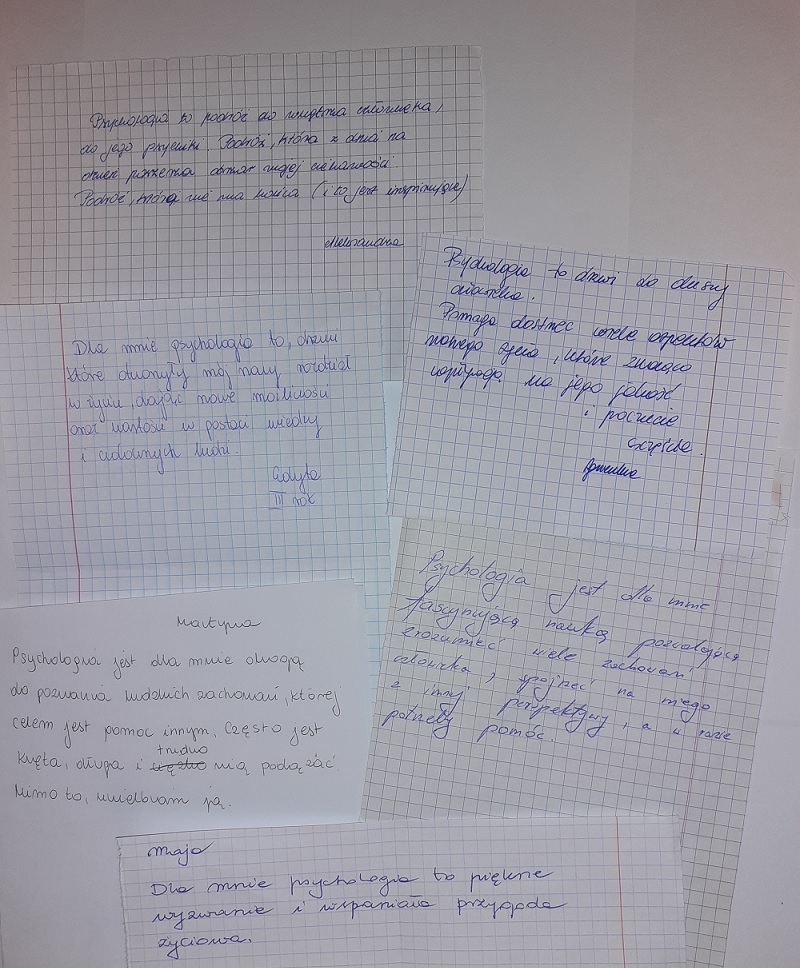 Psychologia to podróż do wnętrza człowieka,
do jego psychiki. Podróż, która z dnia na
dzień poszerza obszar mojej ciekawości.
Podróż, która nie ma końca (i to jest inspirujące)
Aleksandra
Psychologia to drzwi do duszy
człowieka.
Pomaga dostrzec wiele aspektów
naszego życia, które znacząco
wpływają na jego jakość
i poczucie
szczęścia.
Dla mnie psychologia to, drzwi
które otworzyły mój nowy rozdział
w życiu, dając nowe możliwości
oraz wartości w postaci wiedzy
i cudownych ludzi.
Edyta
III rok
Psychologia jest dla mnie
fascynującą nauką pozwalającą
zrozumieć wiele zachowań
człowieka, spojrzeć na niego
z innej perspektywy, a w razie
potrzeby pomóc.
Martyna
Psychologia jest dla mnie drogą
do poznania ludzkich zachowań, której
celem jest pomoc innym. Często jest
trudno
kręta, długa i ciężko nią podążać.
Mimo to, uwielbiam ją.
Maja
Dla mnie psychologia to piękne
wyzwanie i wspaniała przygoda
życiowa.